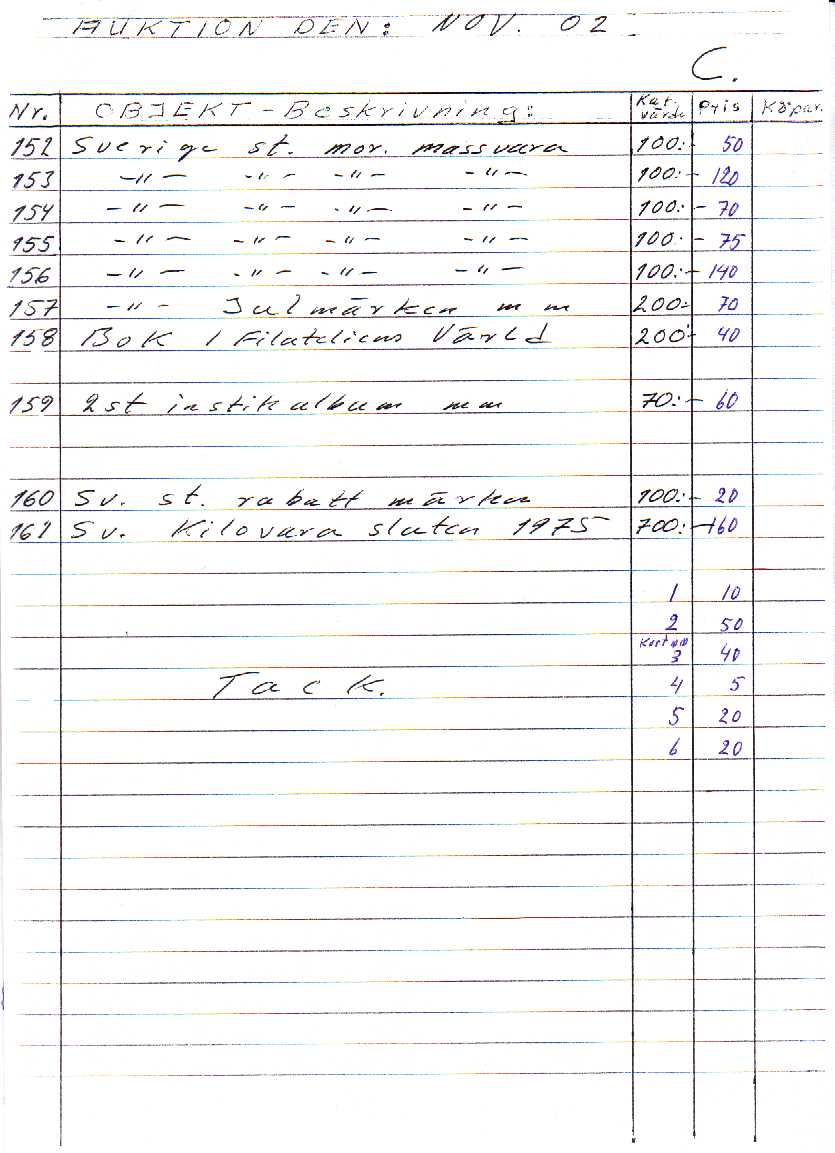 AUKTION DEN: NOV. 02
C.
Nr. OBJEKT-Beskrivning: Kat. värde Pris Köpar.
152 Sverige st. mor. massvara 100:- 50
153 -"- -"- -"- -"- 100:- 120
154 -"- -"- -"- -"- 100:- 70
155 -"- -"- -"- -"- 100:- 75
156 -"- -"- -"- -"- 100:- 140
157 -"- Julmärken m m 200:- 70
158 Bok I Filateliens Värld 200:- 40
159 2st instikalbum mm 70:- 60
160 Sv. st. rabatt märken 100:- 20
161 Sv. Kilovara sluten 1975 700:- 160
1 10
2 50
Kort mm
3 40
Tack. 4 5
5 20
6 20